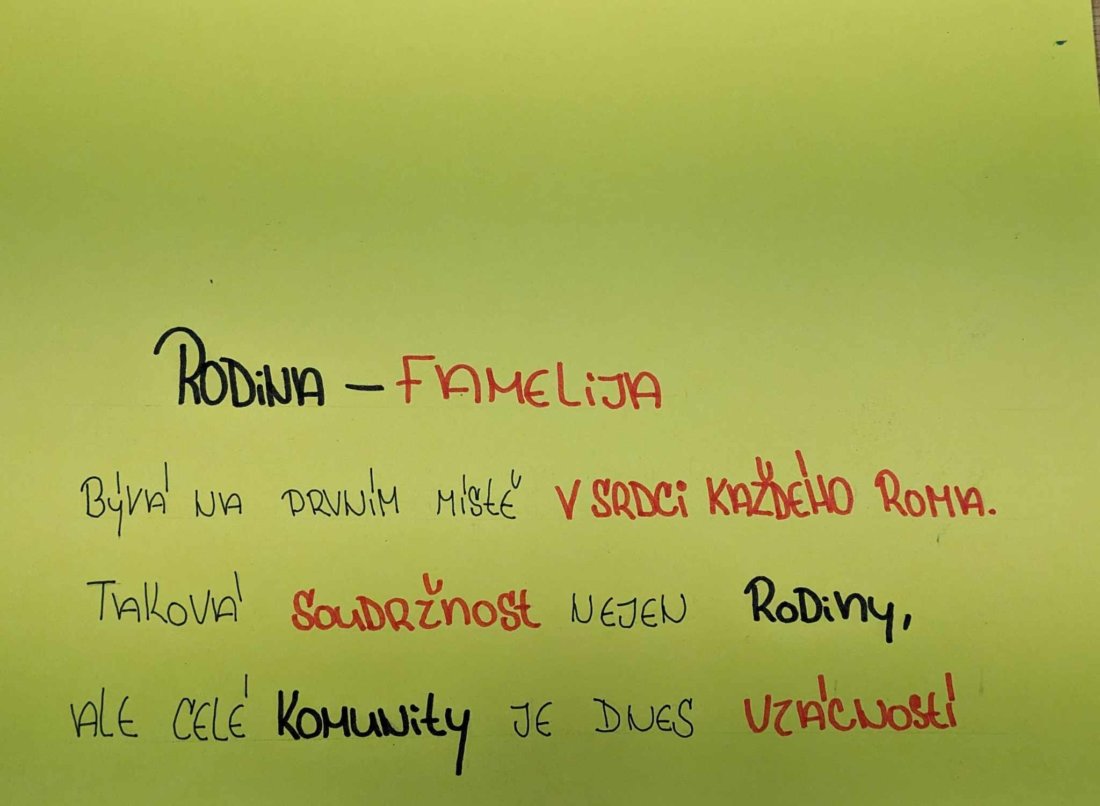 RODINA – FAMELIJA
BÝVÁ NA PRVNÍM MÍSTĚ V SRDCI KAŽDÉHO ROMA.
TAKOVÁ SOUDRŽNOST NEJEN RODINY,
ALE CELÉ KOMUNITY JE DNES VZÁCNOSTÍ